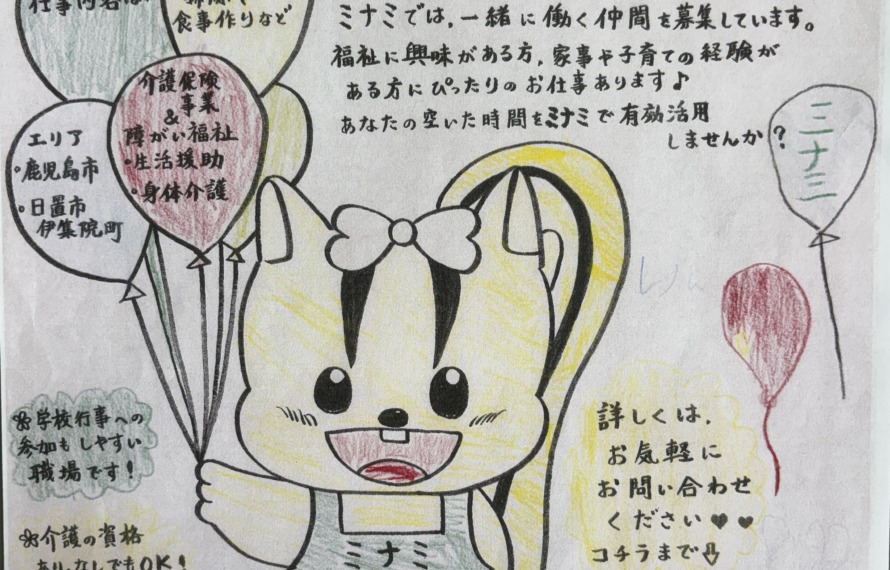 仕事内容は、
食事作りなど
ミナミでは、一緒に働く仲間を募集しています。
福祉に興味がある方、家事や子育ての経験が
ある方にぴったりのお仕事あります♪
あなたの空いた時間をミナミで有効活用
しませんか?
介護保険
事業
&
障がい福祉
・生活援助
・身体介護
エリア
・鹿児島市
・日置市
伊集院町
ミナミ
学校行事への
参加もしやすい
職場です!
介護の資格
あり、なしでもOK!
ミナミ
詳しくは、
お気軽に
お問い合わせ
ください♥♥
コチラまで⇩